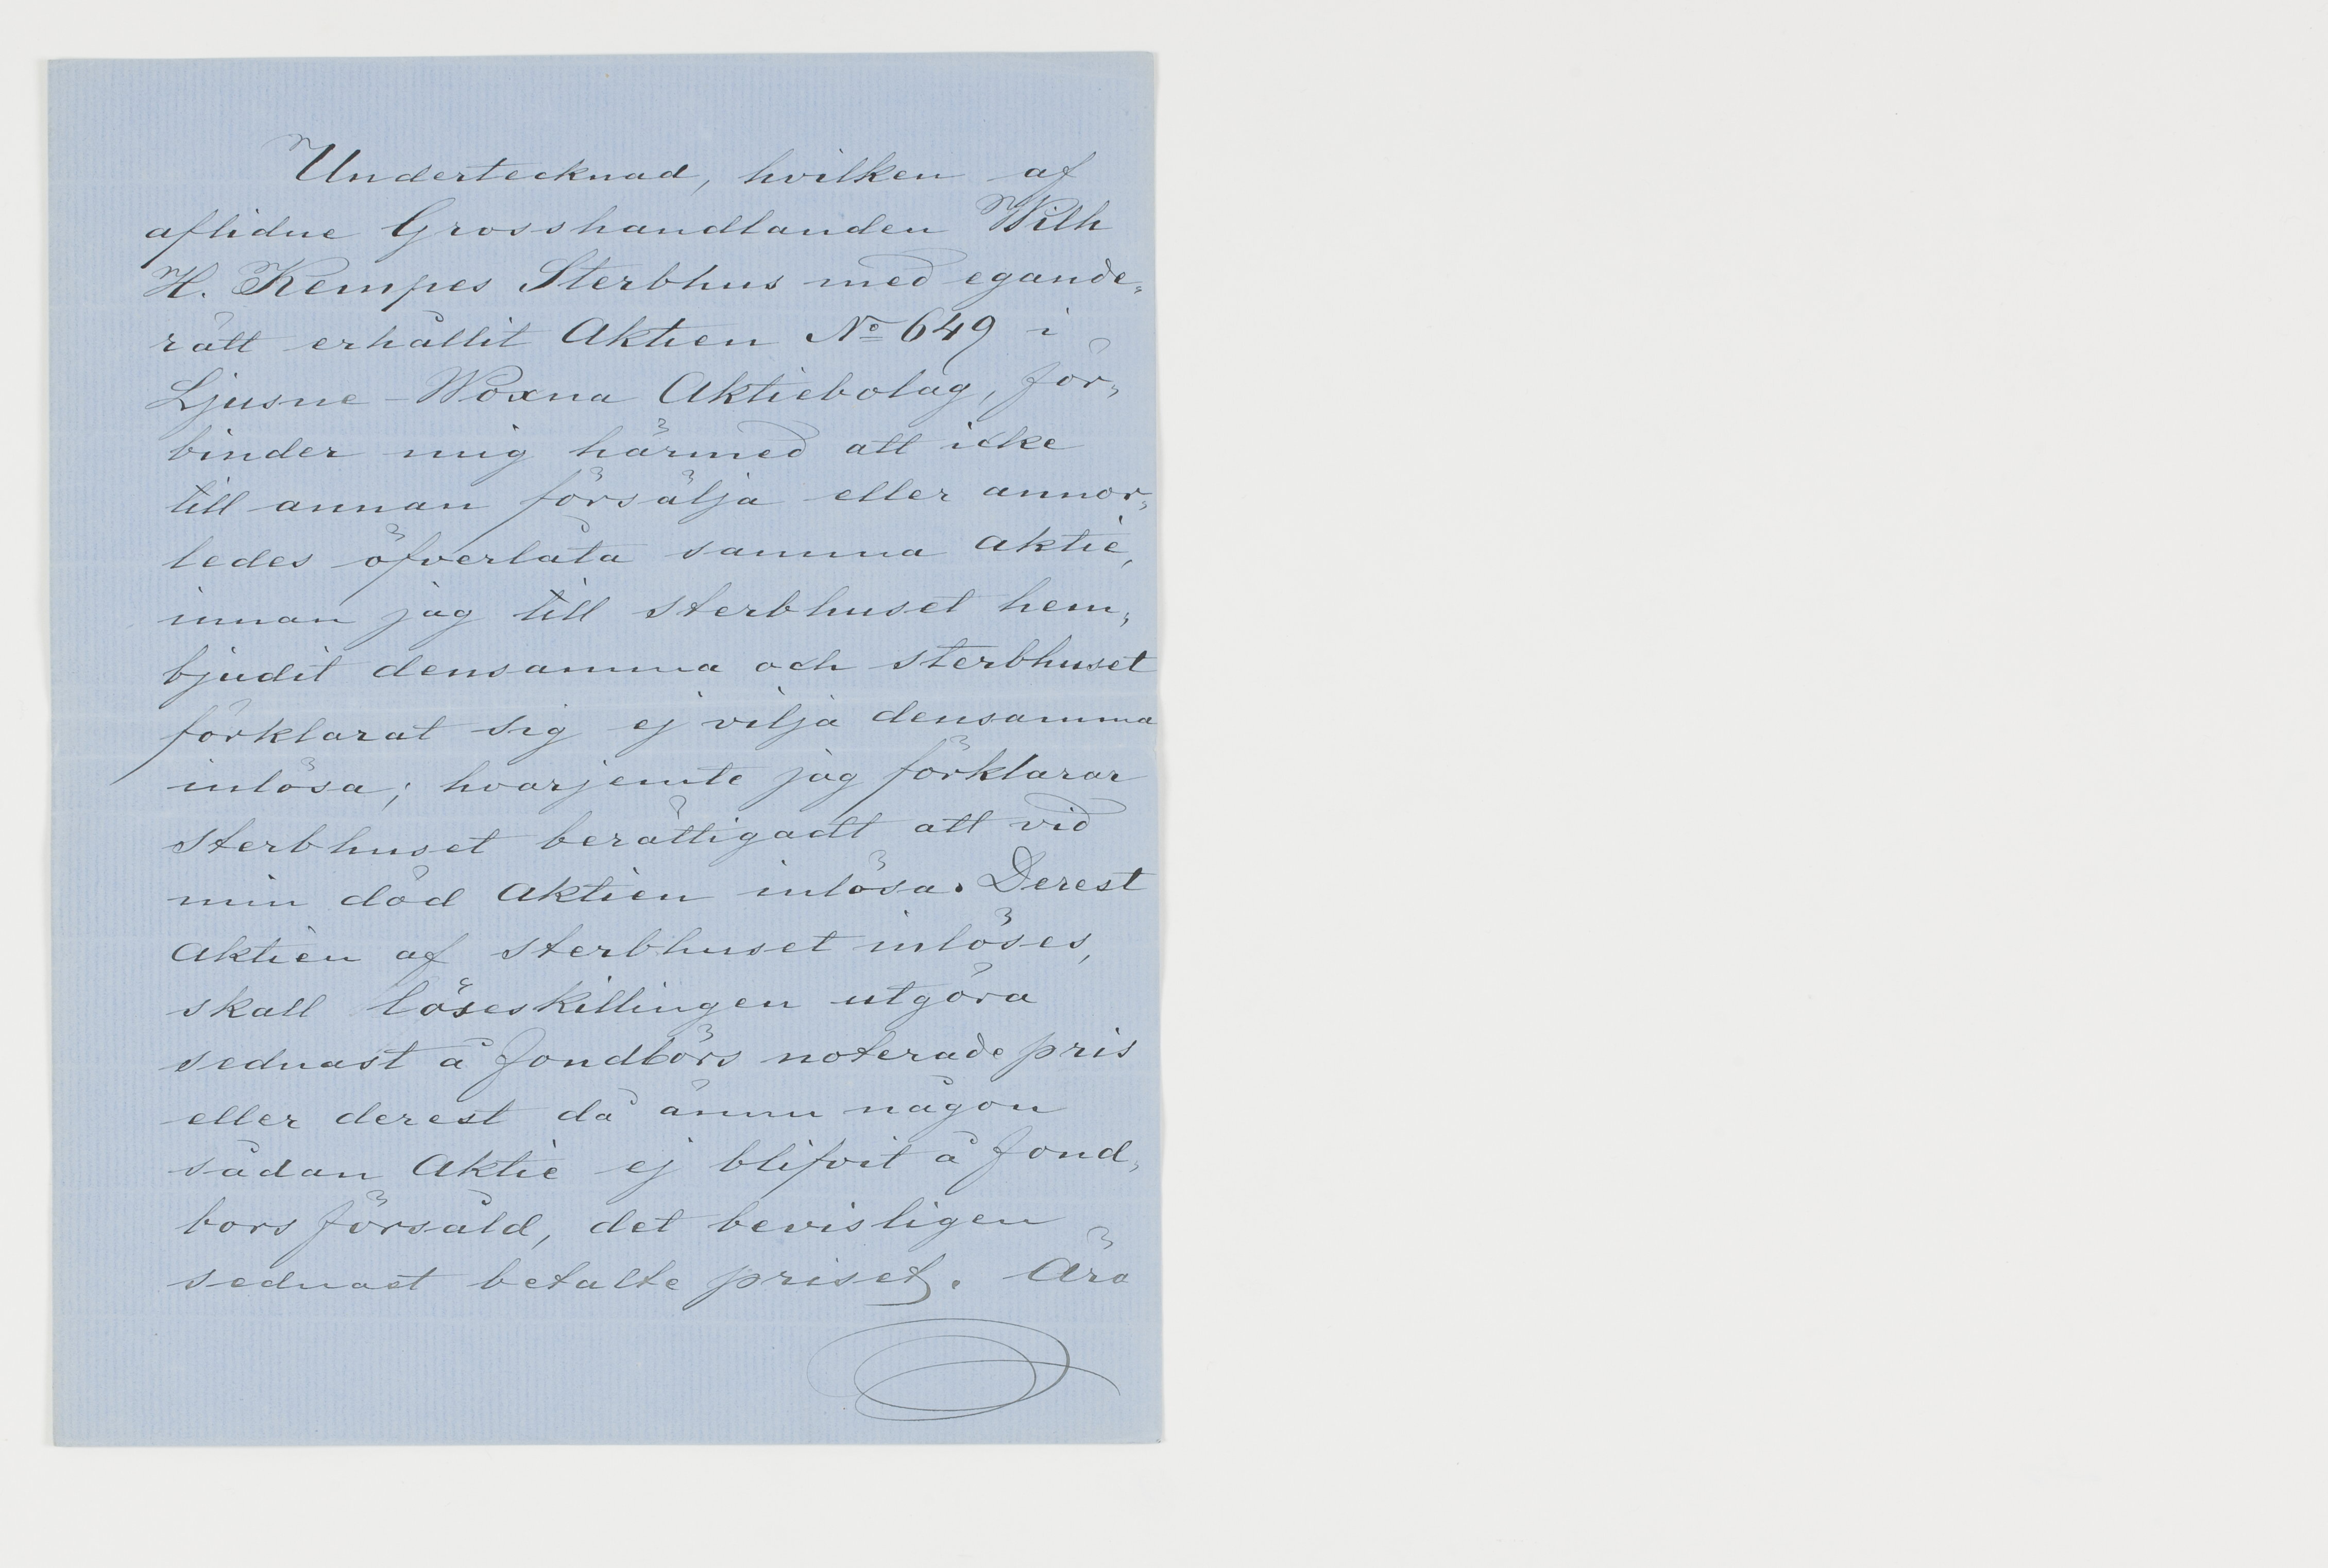 Undertecknad, hvilken af
aflidne Grosshandlanden Wilh
H. Kempes Sterbhus med egande„
rätt erhållit Aktien No 649 i
Ljusne-Woxna Aktiebolag, för„
binder mig härmed att icke
till annan försälja eller annor„
ledes öfverlåta samma aktie,
innan jag till sterbhuset hem„
bjudit densamma och sterbhuset
förklarat sig ej vilja densamma
inlösa; hvarjemte jag förklarar
sterbhuset berättigadt att vid
min död Aktien inlösa. Derest
Aktien af sterbhuset inlöses,
skall löseskillingen utgöra
sednast å fondbörs noterade pris
eller derest då ännu någon
sådan Aktie ej blifvit å fond„
bors försåld, det bevisligen
sednast betalte priset. Äro